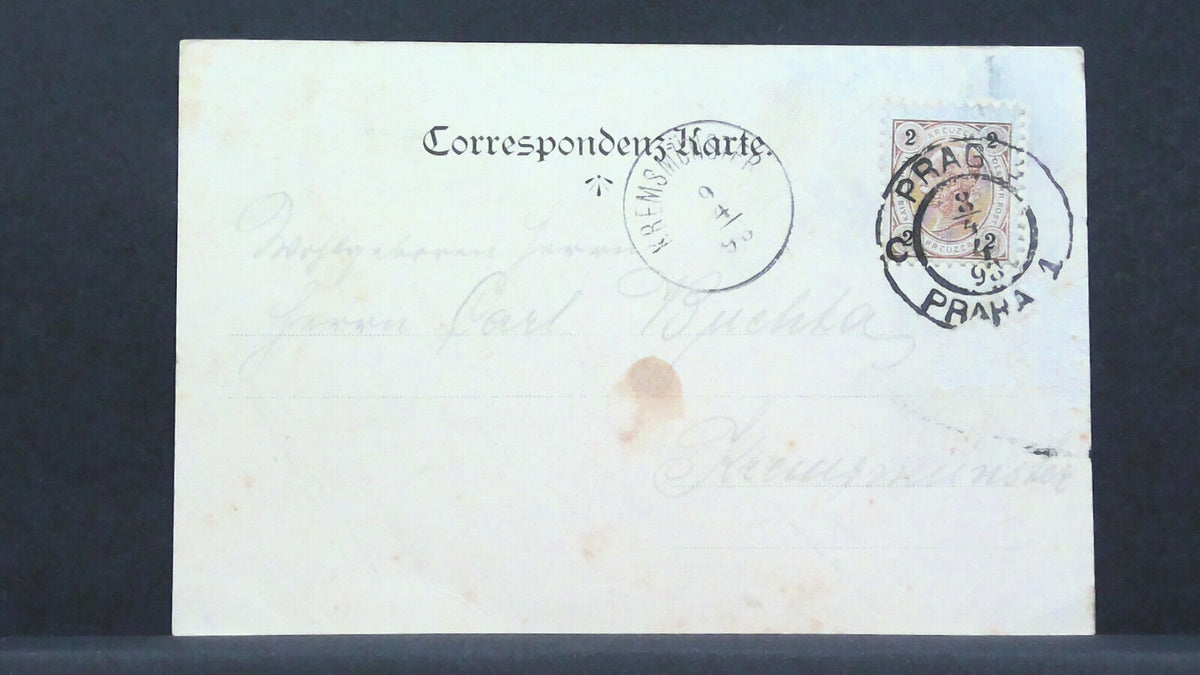 Correspondenz-Karte.
KREMSMÜNSTER
9
4
98
2 KREUZER 2
2 KREUZER 2
PRAG
3
4
98
C
1
PRAHA
Wohlgeboren Herrn
Herrn Carl Buchta
Kremsmünster